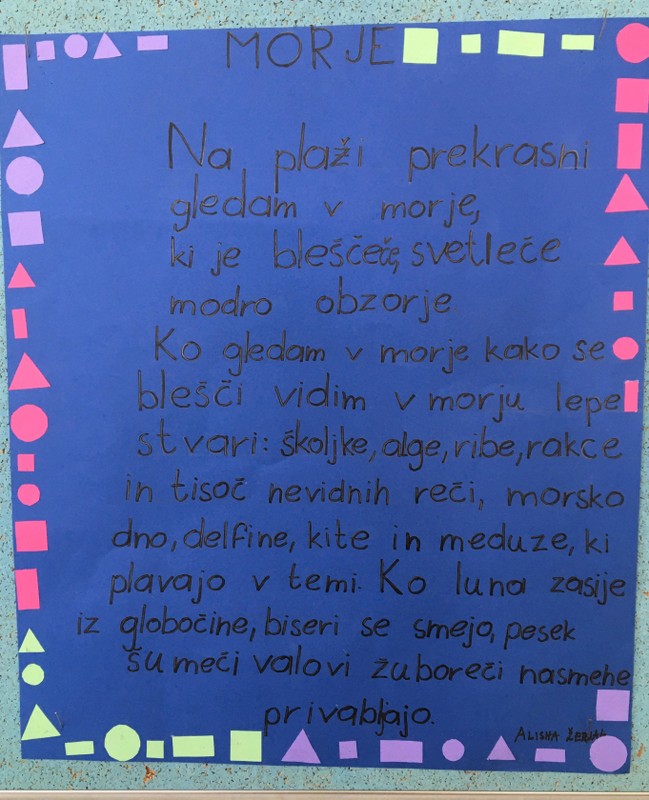 MORJE
Na plaži prekrasni
gledam v morje,
ki je bleščeče, svetleče
modro obzorje
Ko gledam v morje kako se
blešči vidim v morju lepe
stvari: školjke, alge, ribe, rakce
in tisoč nevidnih reči, morsko
dno, delfine, kite in meduze, ki
plavajo v temi. Ko luna zasije
iz globočine, biseri se smejo, pesek
šumeči valovi žuboreči nasmehe
privabljajo.
ALISHA